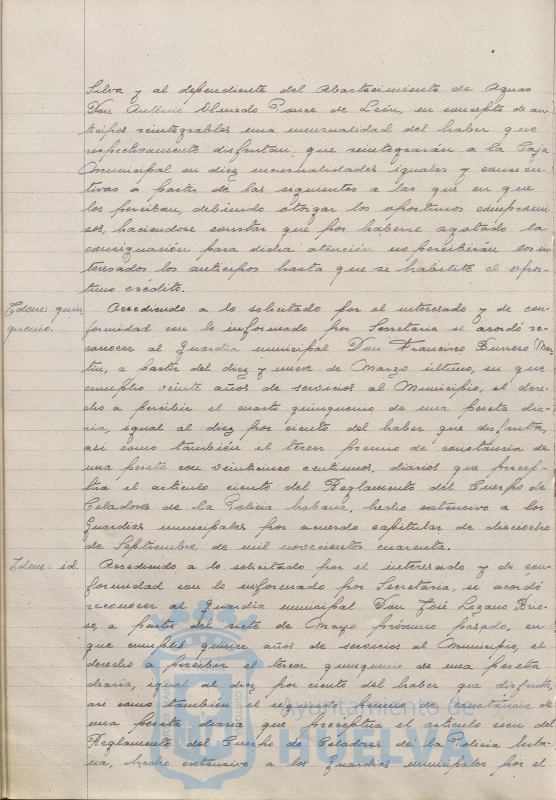 Silva y al dependiente del Abastecimiento de Aguas
Don Antonio Olmedo Ponce de León, en concepto de an-
ticipos reintegrables una mensualidad del haber que
respectivamente disfrutan, que reintegrarán a la Caja
Municipal en diez mensualidades iguales y consecu-
tivas a partir de las siguientes a las que en que
los perciban, debiendo otorgar los oportunos compromi-
sos, haciéndose constar que por haberse agotado la
consignación para dicha atención no percibirán los in-
teresados los anticipos hasta que se habilite el opor-
tuno crédito.
Idem: quin
quenio.
Accediendo a lo solicitado por el interesado y de con-
formidad con lo informado por Secretaría se acordó re-
conocer al Guardia municipal Don Francisco Borrero Mar-
tín, a partir del diez y nueve de Marzo último, en que
cumplió veinte años de servicios al Municipio, el dere-
cho a percibir el cuarto quinquenio de una peseta dia-
ria, igual al diez por ciento del haber que disfruta,
así como también el tercer premio de constancia de
una peseta con veinticinco centimos, diarios que precep-
túa el artículo ciento del Reglamento del Cuerpo de
Celadores de la Policía Urbana, hecho extensivo a los
Guardias municipales por acuerdo capitular de dieciocho
de Septiembre de mil novecientos cuarenta.
Idem: id.
Accediendo a lo solicitado por el interesado y de con-
formidad con lo informado por Secretaría, se acordó
reconocer al Guardia municipal Don José Lozano
a partir del siete de Marzo próximo pasado, en
que cumplió quince años de servicios al Municipio, el
derecho a percibir el tercer quinquenio de una peseta
diaria, igual al diez por ciento del haber que disfruta
así como también el segundo premio de constancia de
una peseta diaria que preceptúa el artículo cien del
Reglamento del Cuerpo de Celadores de la Policía Urba-
na, hecho extensivo a los Guardias municipales por el
Ayuntamiento de
HUELVA